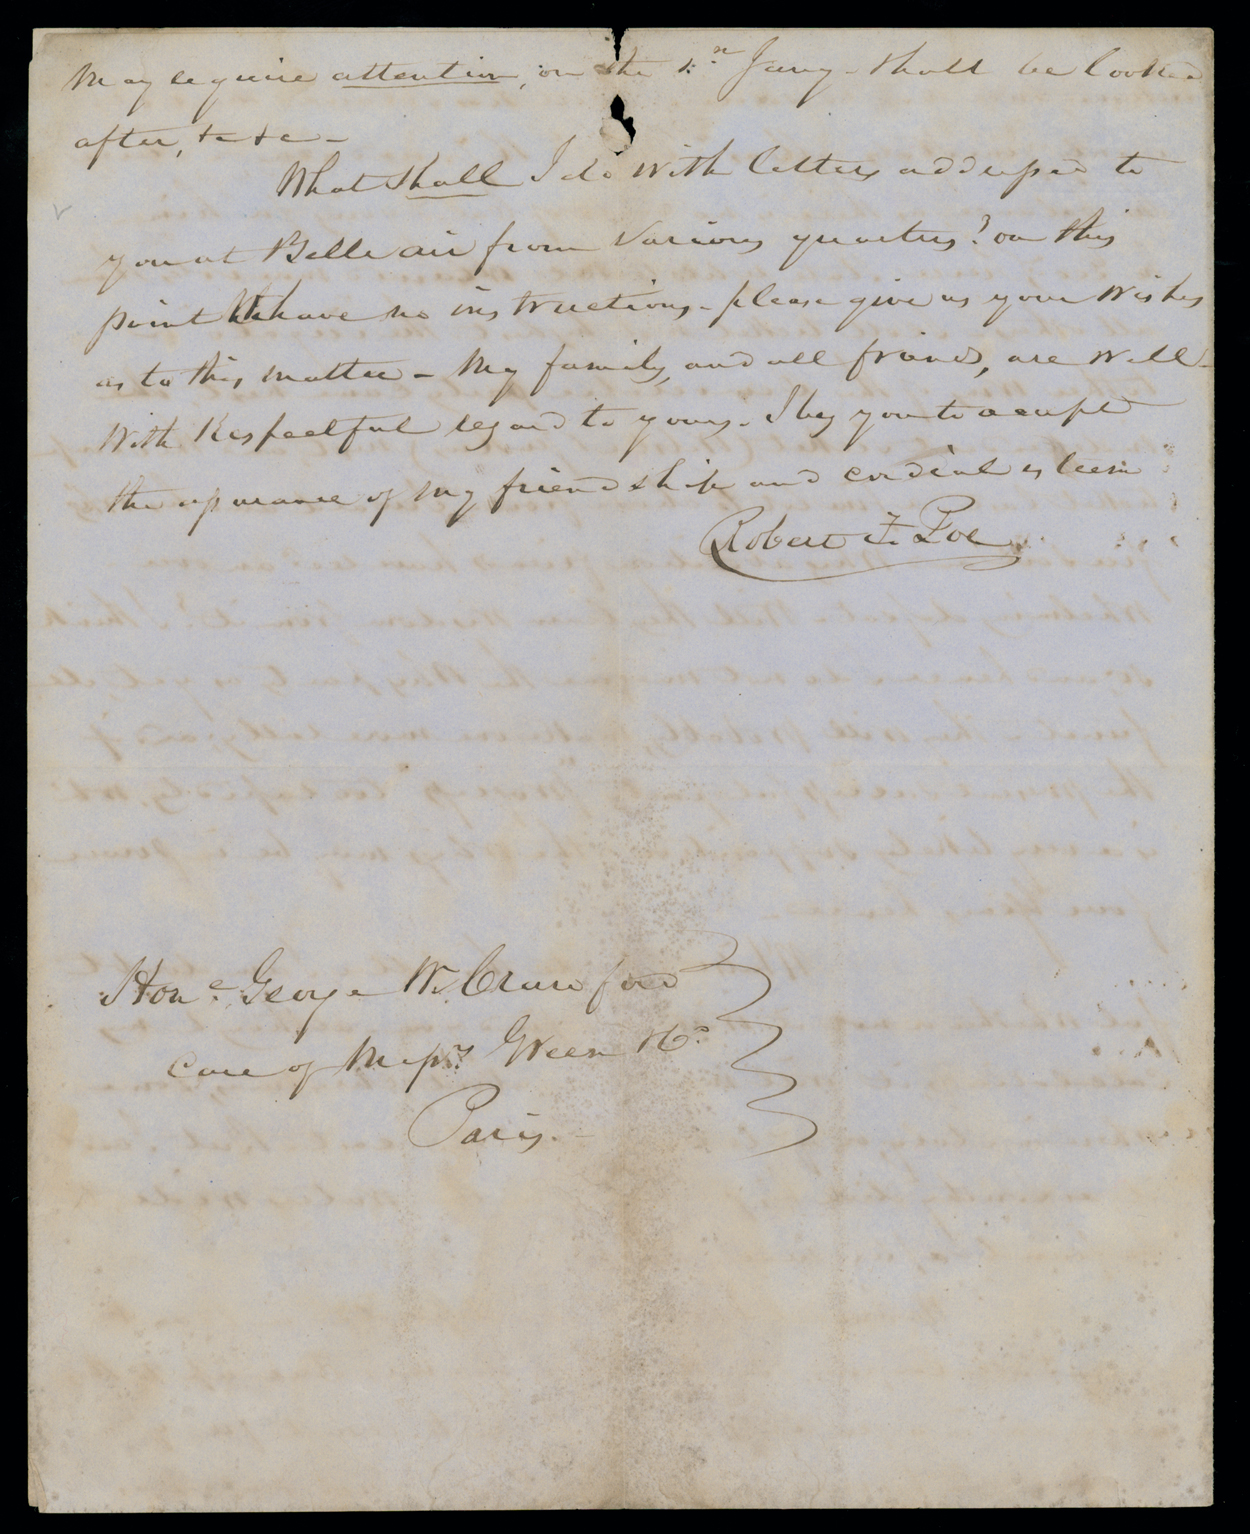 May require attention, on the 1st Jany - Shall be looked
after, &c &c -
What Shall I do with letters addressed to
you at Belleair from Various quarters? on this
point We have no instructions - please give us your Wishes
as to this matter - My family, and all friends, are Well -
With Respectful regard to yours. I beg you to accept
the assurance of my friendship and cordial esteem
Robert F. Poe
Hone. George W. Crawford
Care of Messrs Green & Co
Paris. -